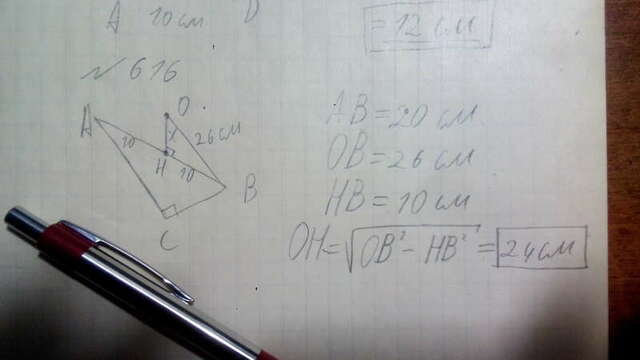 A 10см D
= 12 см
№ 616
A
O
26 см
x
10
H
10
B
C
AB = 20 см
OB = 26 см
HB = 10 см
OH = √OB² - HB² = 24 см